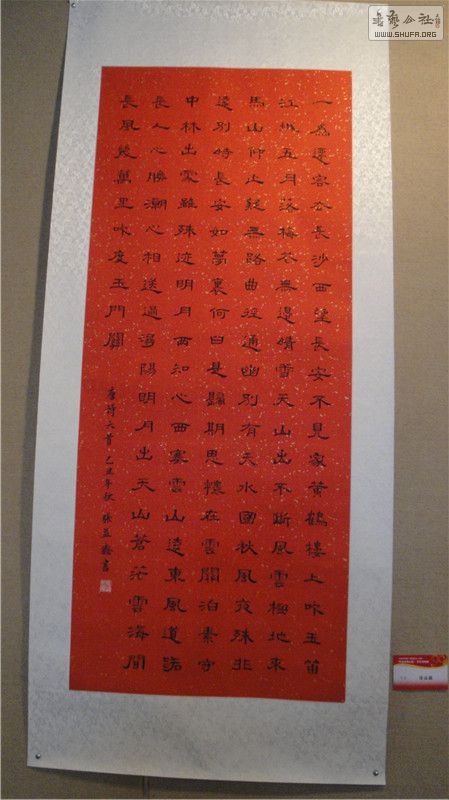 一為遷客去長沙西望長安不見家黃鶴樓上吹玉笛
江城五月落梅花無邊晴雪天山出不斷風雲極地來
馬山仰止疑無路曲徑通幽別有天水國秋風夜殊非
遠別時長安如夢裏何日是歸期思懷在雲闕泊素守
中林出處雖殊迹明月兩知心西塞雲山遠東風道路
長人心勝潮心相送過潯陽明月出天山蒼茫雲海間
長風幾萬里吹度玉門關
唐詩六首 己丑年秋 張益書
公社
WWW.SHUFA.ORG